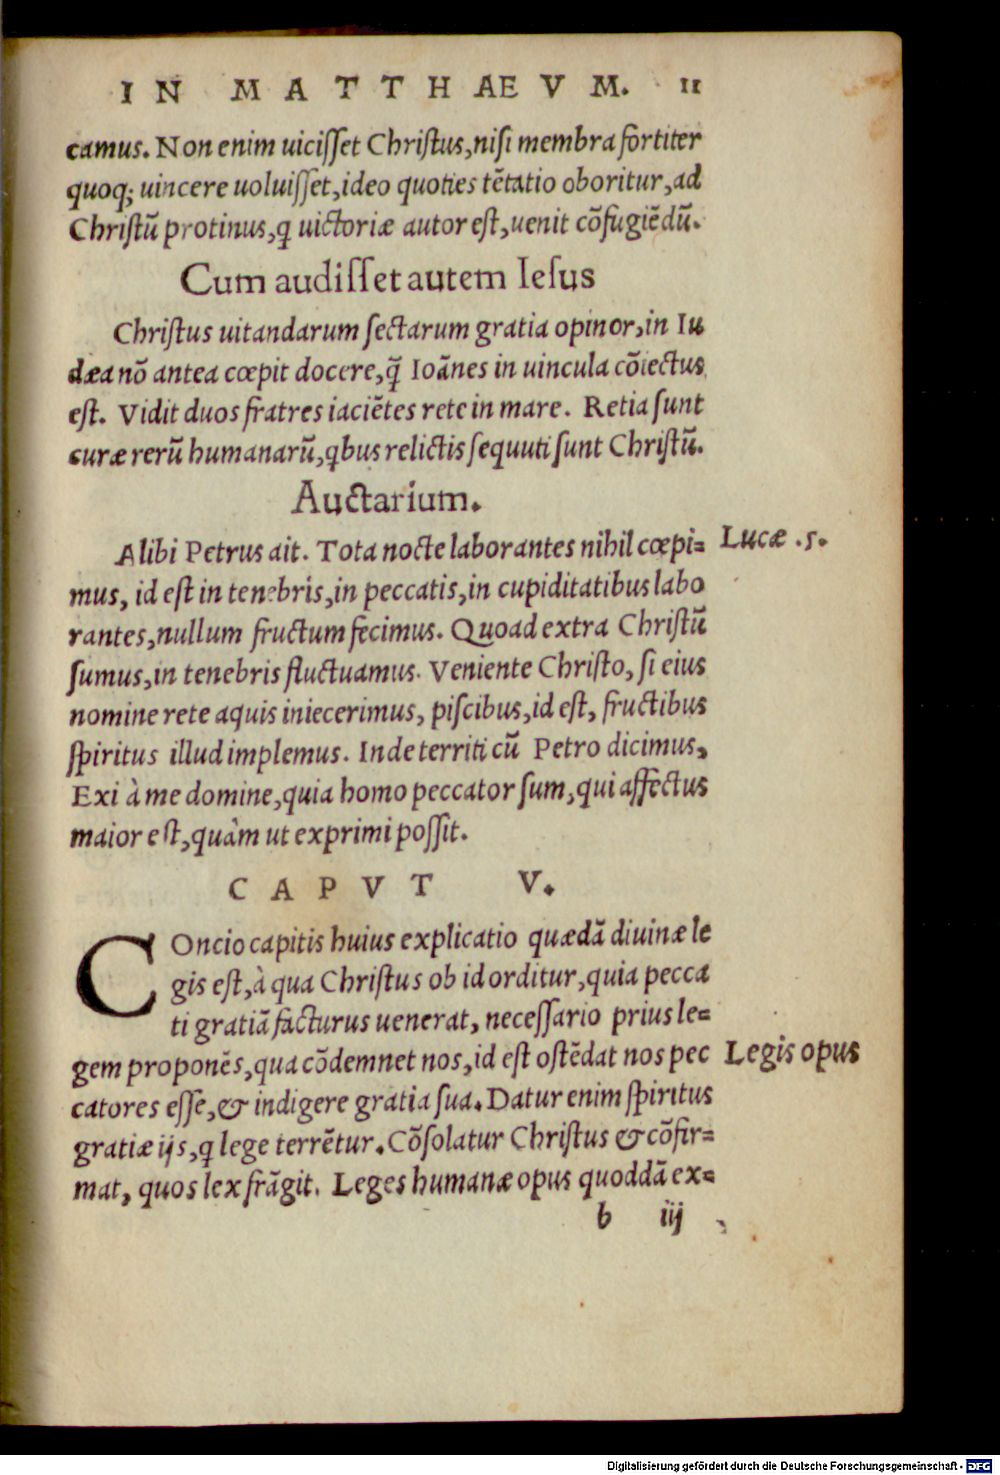 IN MATTHAEVM. 11
camus. Non enim uiciſſet Chriſtus, niſi membra fortiter
quoq; uincere uoluiſſet, ideo quoties tẽtatio oboritur, ad
Chriſtũ protinus, q uictoriæ autor eſt, uenit cõfugiẽdũ.
Cum audiſſet autem Ieſus
Chriſtus uitandarum ſectarum gratia opinor, in Iu
dæa nõ antea cœpit docere, q̃ Ioãnes in uincula cõiectus
eſt. Vidit duos fratres iaciẽtes rete in mare. Retia ſunt
curæ rerũ humanarũ, qbus relictis ſequuti ſunt Chriſtũ.
Auctarium.
Alibi Petrus ait. Tota nocte laborantes nihil cœpi= Lucæ .5.
mus, id eſt in tenebris, in peccatis, in cupiditatibus labo
rantes, nullum fructum fecimus. Quoad extra Chriſtũ
ſumus, in tenebris fluctuamus. Veniente Chriſto, ſi eius
nomine rete aquis iniecerimus, piſcibus, id eſt, fructibus
ſpiritus illud implemus. Inde territi cũ Petro dicimus,
Exi à me domine, quia homo peccator ſum, qui affectus
maior eſt, quàm ut exprimi poſſit.
CAPVT V.
COncio capitis huius explicatio quædã diuinæ le
gis eſt, à qua Chriſtus ob id orditur, quia pecca
ti gratiã facturus uenerat, neceſſario prius le=
gem proponẽs, qua cõdemnet nos, id eſt oſtẽdat nos pec Legis opus
catores eſſe, & indigere gratia ſua. Datur enim ſpiritus
gratiæ ijs, q lege terrẽtur. Cõſolatur Chriſtus & cõfir=
mat, quos lex frãgit. Leges humanæ opus quoddã ex=
b iij
Digitalisierung gefördert durch die Deutsche Forschungsgemeinschaft - DFG